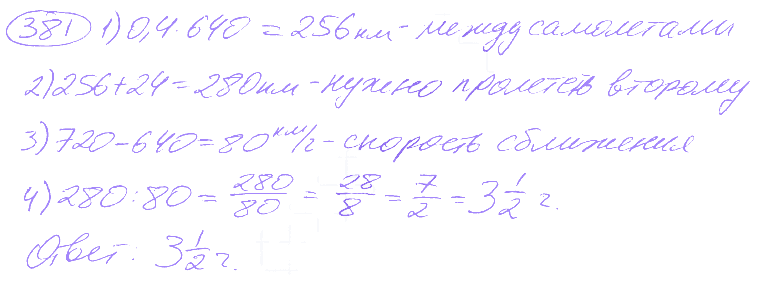 381 1) 0,4 · 640 = 256 км - между самолетами
2) 256 + 24 = 280 км - нужно пролететь второму
3) 720 - 640 = 80 км/г - скорость сближения
4) 280 : 80 = 280/80 = 28/8 = 7/2 = 3 1/2 г.
Ответ: 3 1/2 г.